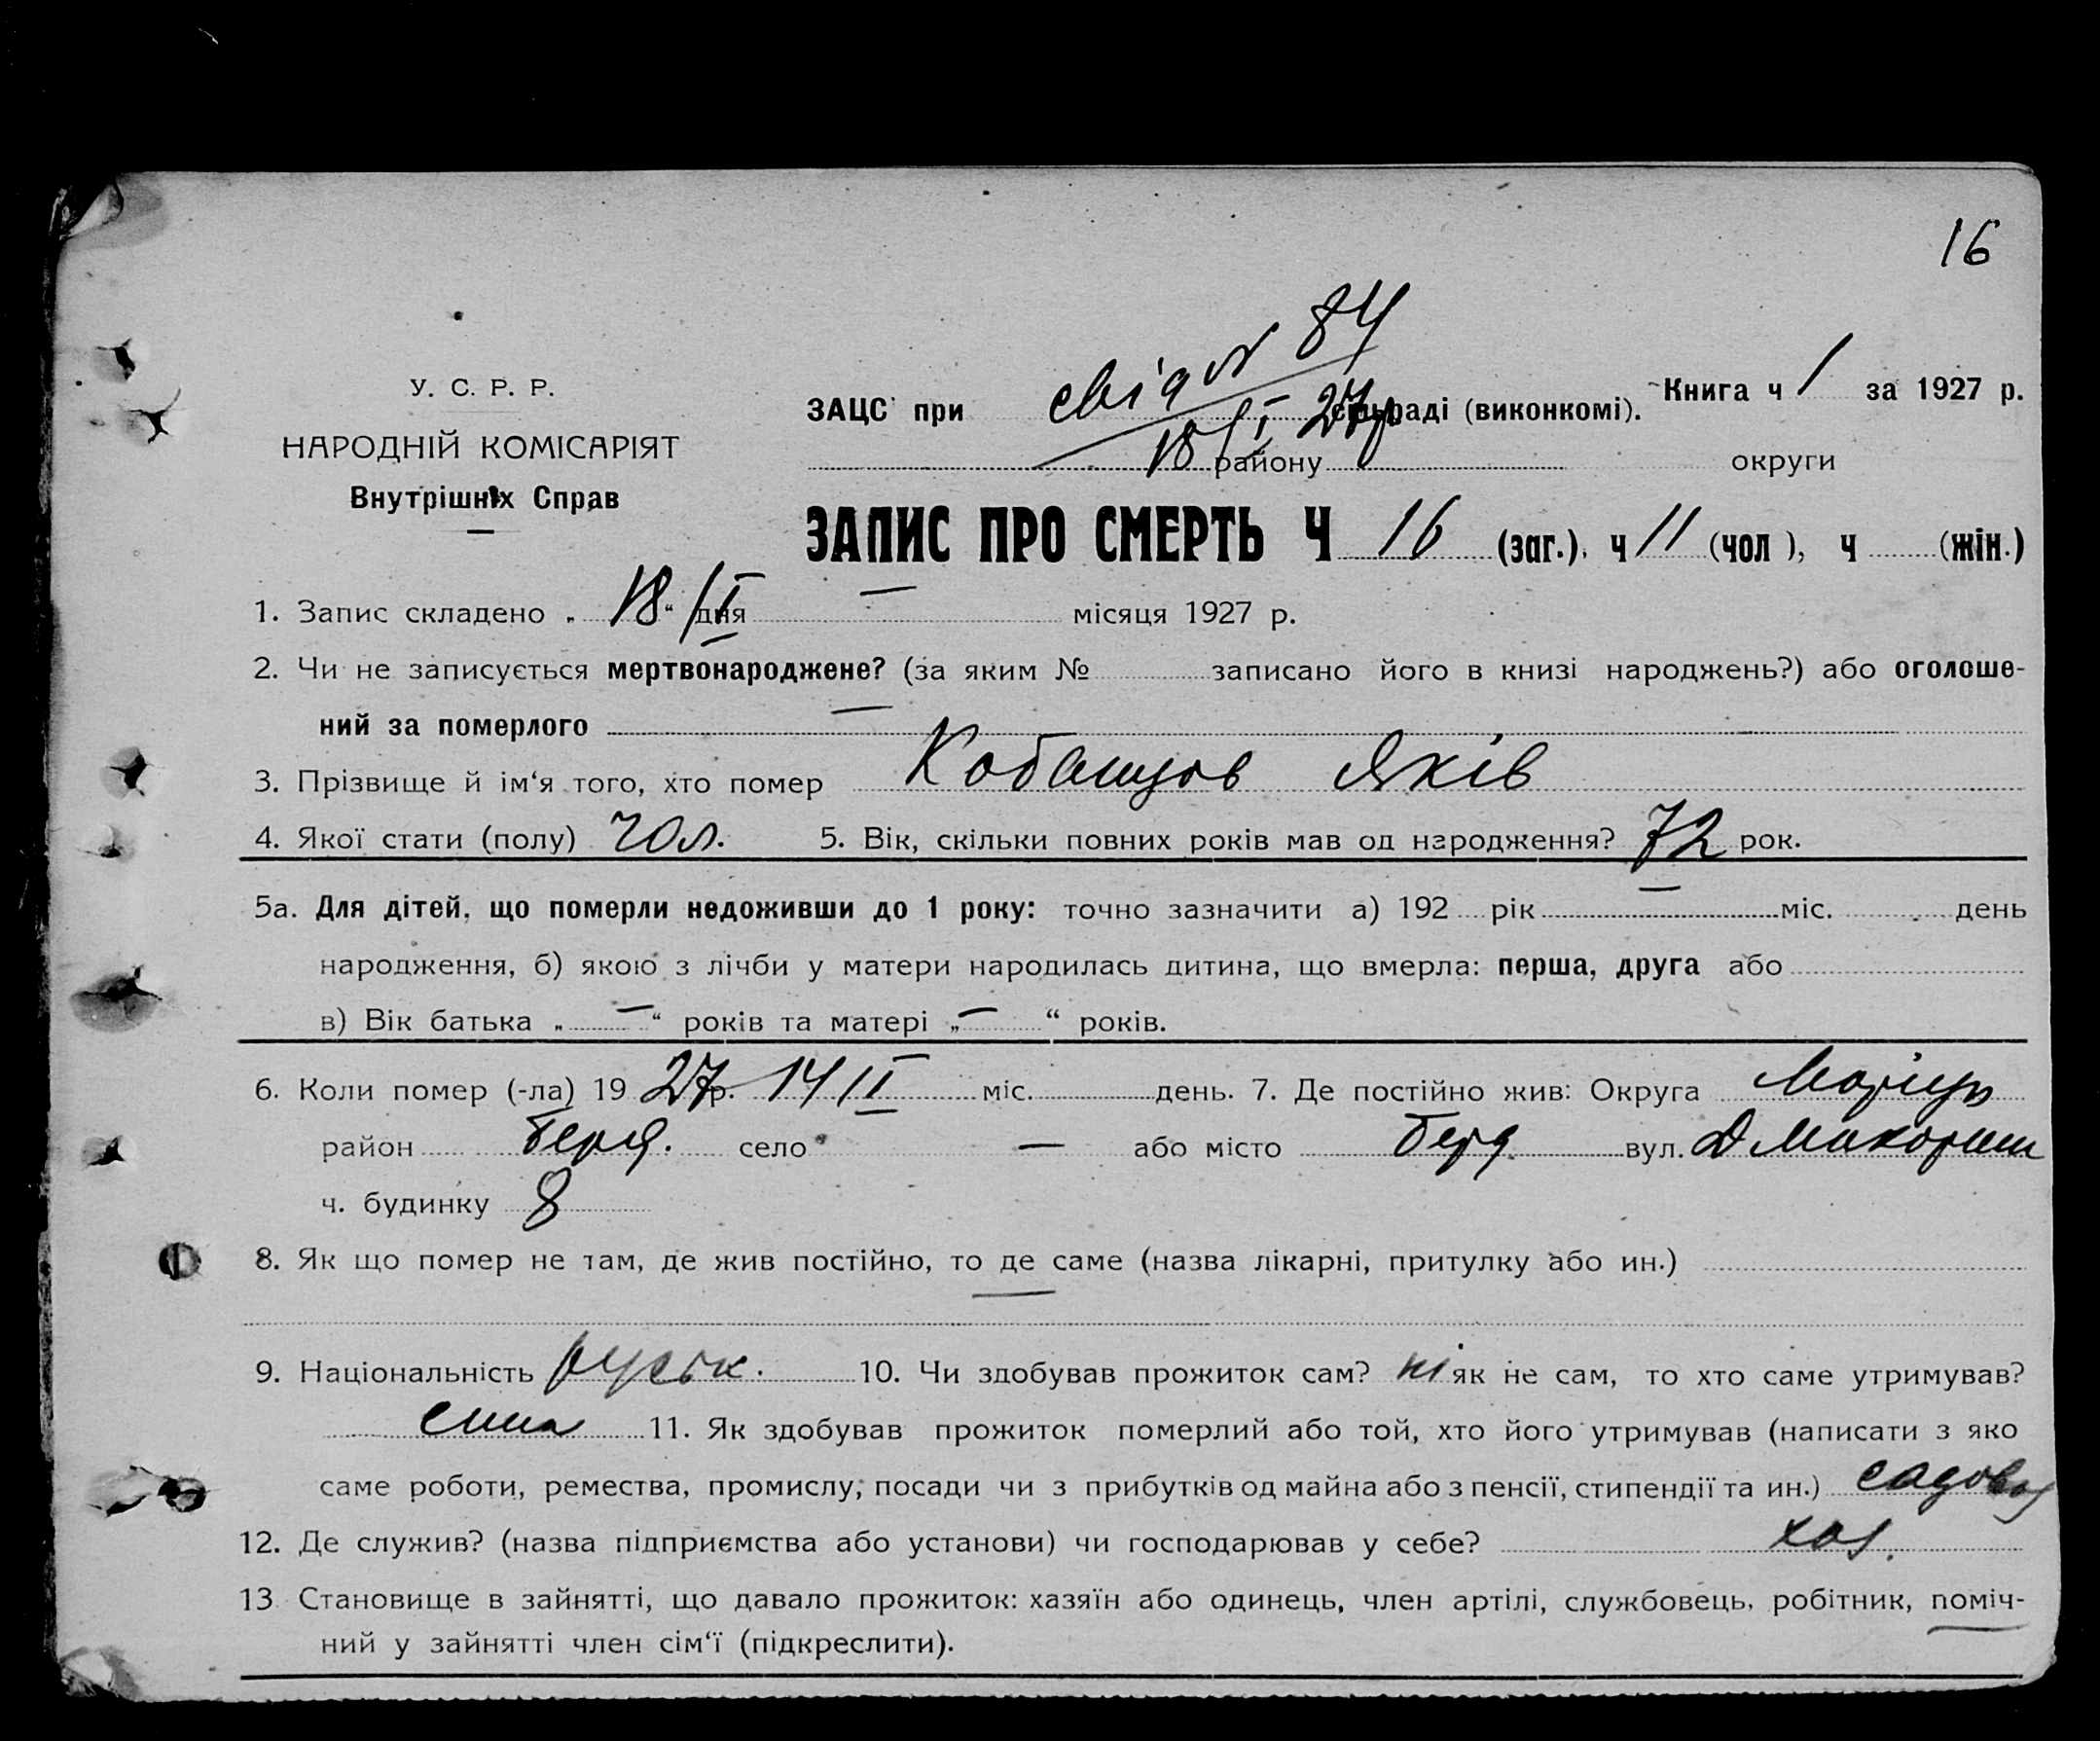 16
У. С. Р. Р.
НАРОДНІЙ КОМІСАРІЯТ
Внутрішніх Справ
свід N 84
18/I 27р.
ЗАЦС при сільраді (виконкомі). Книга ч 1 за 1927 р.
району округи
ЗАПИС ПРО СМЕРТЬ Ч 16 (заг.), ч 11 (чол ), ч (жін.)
1. Запис складено „ 18 “ /II дня — місяця 1927 р.
2. Чи не записується мертвонароджене? (за яким № записано його в книзі народжень?) або оголоше-
ний за померлого —
3. Прізвище й ім‘я того, хто помер Кобанцов Яків
4. Якої стати (полу) чол. 5. Вік, скільки повних років мав од народження? 72 рок.
5а. Для дітей, що померли недоживши до 1 року: точно зазначити а) 192 рік — міс. день
народження, б) якою з лічби у матери народилась дитина, що вмерла: перша, друга або
в) Вік батька „ — “ років та матері „ — “ років.
6. Коли помер (-ла) 19 27 р. 14/II міс. день. 7. Де постійно жив: Округа Маріуп
район Берд. село — або місто Берд. вул.
ч. будинку 8
8. Як що помер не там, де жив постійно, то де саме (назва лікарні, притулку або ин.)
—
9. Національність руськ. 10. Чи здобував прожиток сам? ні як не сам, то хто саме утримував?
сина 11. Як здобував прожиток померлий або той, хто його утримував (написати з яко
саме роботи, ремества, промислу, посади чи з прибутків од майна або з пенсії, стипендії та ин.) садовод
12. Де служив? (назва підприємства або установи) чи господарював у себе? хоз.
13 Становище в зайнятті, що давало прожиток: хазяїн або одинець, член артілі, службовець, робітник, поміч-
ний у зайнятті член сім‘ї (підкреслити).